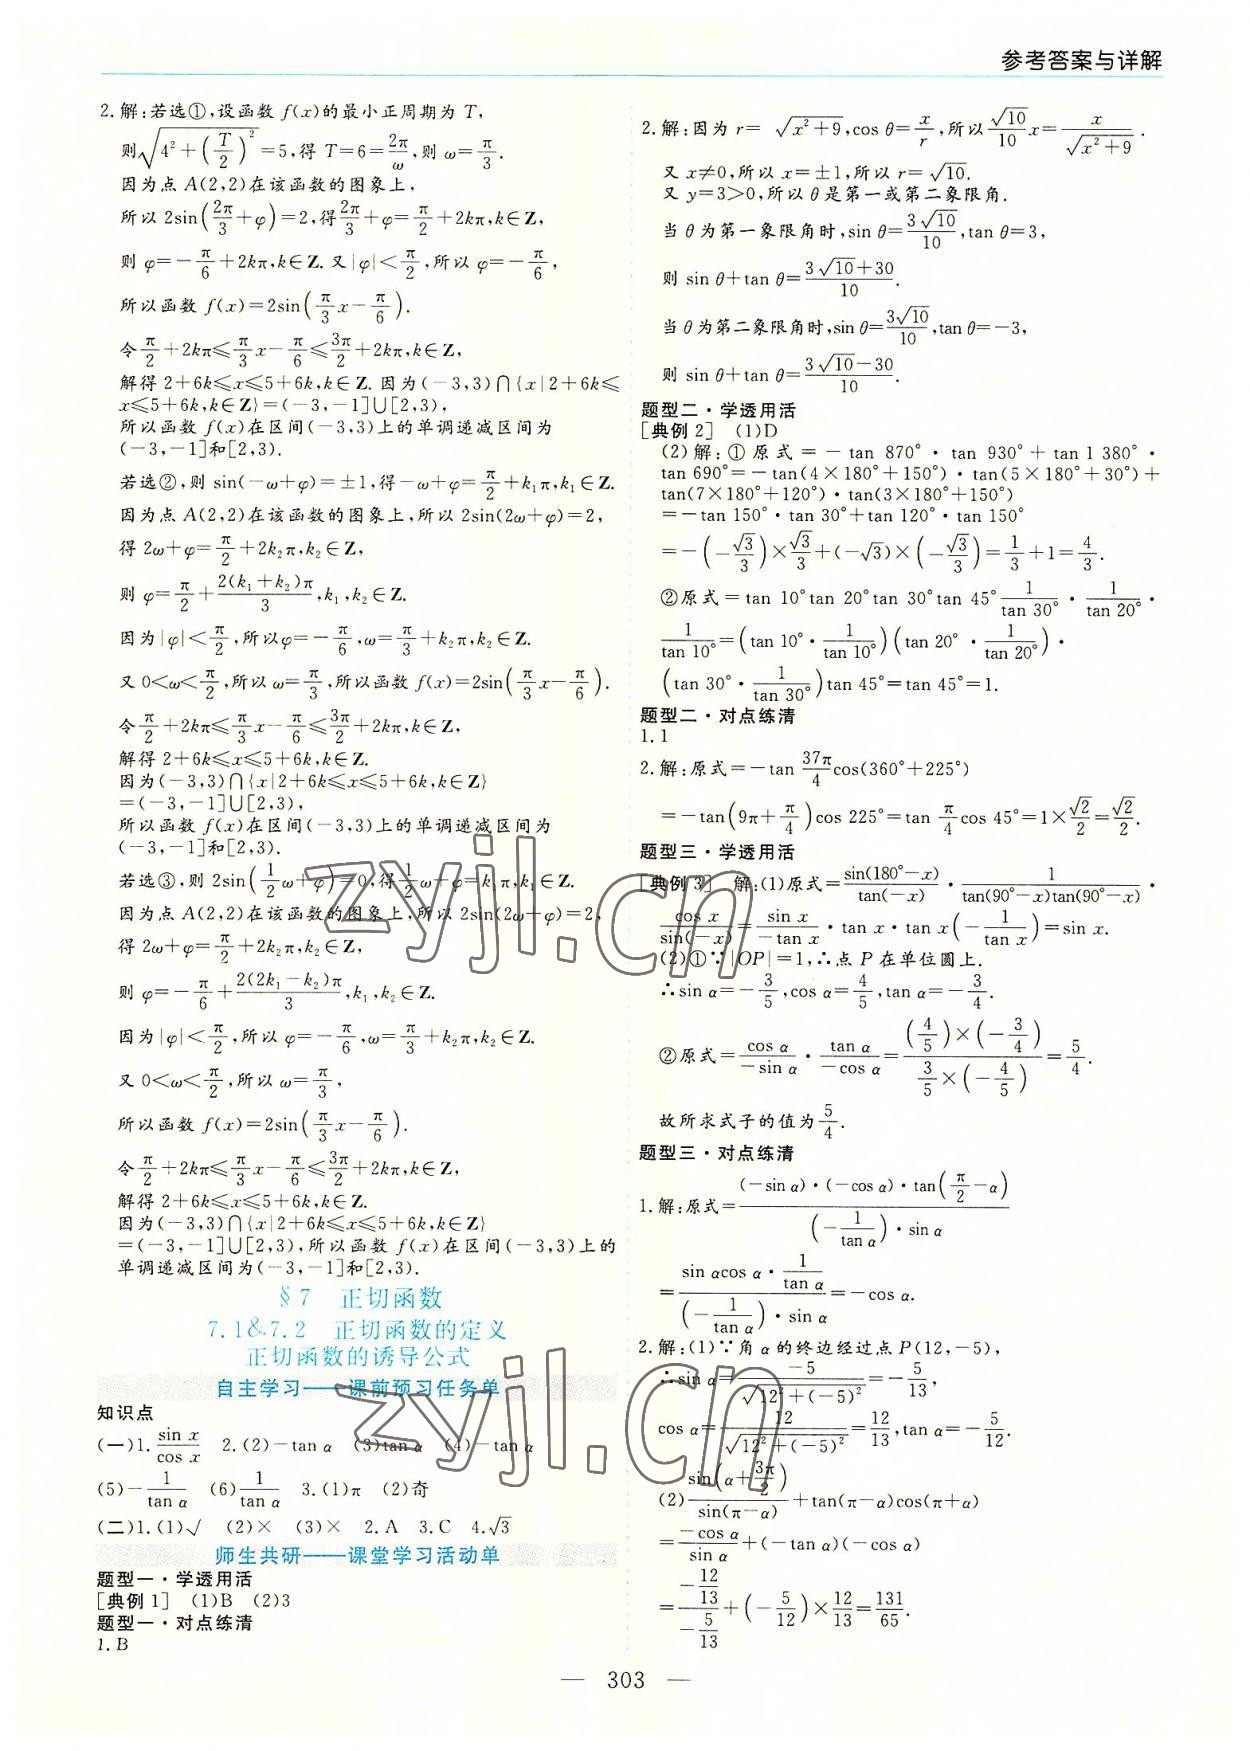 参考答案与详解
2.解:若选①,设函数 f(x)的最小正周期为 T,
则√(4²+(T/2)²)=5,得 T=6=2π/ω,则 ω=π/3.
因为点 A(2,2)在该函数的图象上,
所以 2sin(2π/3+φ)=2,得2π/3+φ=π/2+2kπ,k∈Z,
则 φ=-π/6+2kπ,k∈Z.又|φ|<π/2,所以 φ=-π/6,
所以函数 f(x)=2sin(π/3x-π/6).
令π/2+2kπ≤π/3x-π/6≤3π/2+2kπ,k∈Z,
解得 2+6k≤x≤5+6k,k∈Z.因为(-3,3)∩{x|2+6k≤
x≤5+6k,k∈Z}=(-3,-1]∪[2,3),
所以函数 f(x)在区间(-3,3)上的单调递减区间为
(-3,-1]和[2,3).
若选②,则 sin(-ω+φ)=±1,得-ω+φ=π/2+k₁π,k₁∈Z.
因为点 A(2,2)在该函数的图象上,所以 2sin(2ω+φ)=2,
得 2ω+φ=π/2+2k₂π,k₂∈Z,
则 φ=π/2+2(k₁+k₂)π/3,k₁,k₂∈Z.
因为|φ|<π/2,所以φ=-π/6,ω=π/3+k₂π,k₂∈Z.
又 0<ω<π/2,所以 ω=π/3,所以函数 f(x)=2sin(π/3x-π/6).
令π/2+2kπ≤π/3x-π/6≤3π/2+2kπ,k∈Z,
解得 2+6k≤x≤5+6k,k∈Z.
因为(-3,3)∩{x|2+6k≤x≤5+6k,k∈Z}
=(-3,-1]∪[2,3),
所以函数 f(x)在区间(-3,3)上的单调递减区间为
(-3,-1]和[2,3).
若选③,则 2sin(1/2ω+φ)=0,得1/2ω+φ=k₁π,k₁∈Z.
因为点 A(2,2)在该函数的图象上,所以 2sin(2ω+φ)=2,
得 2ω+φ=π/2+2k₂π,k₂∈Z,
则 φ=-π/6+2(2k₁-k₂)π/3,k₁,k₂∈Z.
因为|φ|<π/2,所以 φ=-π/6,ω=π/3+k₂π,k₂∈Z.
又 0<ω<π/2,所以 ω=π/3,
所以函数 f(x)=2sin(π/3x-π/6).
令π/2+2kπ≤π/3x-π/6≤3π/2+2kπ,k∈Z,
解得 2+6k≤x≤5+6k,k∈Z.
因为(-3,3)∩{x|2+6k≤x≤5+6k,k∈Z}
=(-3,-1]∪[2,3),所以函数 f(x)在区间(-3,3)上的
单调递减区间为(-3,-1]和[2,3).
§7 正切函数
7.1&7.2 正切函数的定义
正切函数的诱导公式
自主学习——课前预习任务单
知识点
(一)1.sin x/cos x 2.(2)-tan α (3)tan α (4)-tan α
(5)-1/tan α (6)1/tan α 3.(1)π (2)奇
(二)1.(1)√ (2)× (3)× 2.A 3.C 4.√3
师生共研——课堂学习活动单
题型一·学透用活
[典例1] (1)B (2)3
题型一·对点练清
1.B
2.解:因为 r=√(x²+9),cos θ=x/r,所以√10/10x=x/√(x²+9).
又 x≠0,所以 x=±1,所以 r=√10.
又 y=3>0,所以 θ 是第一或第二象限角.
当 θ 为第一象限角时,sin θ=3√10/10,tan θ=3,
则 sin θ+tan θ=(3√10+30)/10.
当 θ 为第二象限角时,sin θ=3√10/10,tan θ=-3,
则 sin θ+tan θ=(3√10-30)/10.
题型二·学透用活
[典例2] (1)D
(2)解:①原式=-tan 870°·tan 930°+tan 1 380°·
tan 690°=-tan(4×180°+150°)·tan(5×180°+30°)+
tan(7×180°+120°)·tan(3×180°+150°)
=-tan 150°·tan 30°+tan 120°·tan 150°
=-(-√3/3)×√3/3+(-√3)×(-√3/3)=1/3+1=4/3.
②原式=tan 10°tan 20°tan 30°tan 45°1/tan 30°·1/tan 20°·
1/tan 10°=(tan 10°·1/tan 10°)(tan 20°·1/tan 20°)·
(tan 30°·1/tan 30°)tan 45°=tan 45°=1.
题型二·对点练清
1.1
2.解:原式=-tan 37π/4cos(360°+225°)
=-tan(9π+π/4)cos 225°=tan π/4cos 45°=1×√2/2=√2/2.
题型三·学透用活
[典例3] 解:(1)原式=sin(180°-x)/tan(-x)·1/tan(90°-x)tan(90°-x)·
cos x/sin(-x)=sin x/-tan x·tan x·tan x(-1/tan x)=sin x.
(2)①∵|OP|=1,∴点 P 在单位圆上.
∴sin α=-3/5,cos α=4/5,tan α=-3/4.
②原式=cos α/-sin α·tan α/-cos α=(4/5)×(-3/4)/3/5×(-4/5)=5/4.
故所求式子的值为5/4.
题型三·对点练清
1.解:原式=(-sin α)·(-cos α)·tan(π/2-α)/(-1/tan α)·sin α
=sin αcos α·1/tan α/(-1/tan α)·sin α=-cos α.
2.解:(1)∵角 α 的终边经过点 P(12,-5),
∴sin α=-5/√(12²+(-5)²)=-5/13,
cos α=12/√(12²+(-5)²)=12/13,tan α=-5/12.
(2)sin(α+3π/2)/sin(π-α)+tan(π-α)cos(π+α)
=-cos α/sin α+(-tan α)(-cos α)
=-12/13/-5/13+(-5/12)×12/13=131/65.
— 303 —
zyjl.cn
zyjl.cn